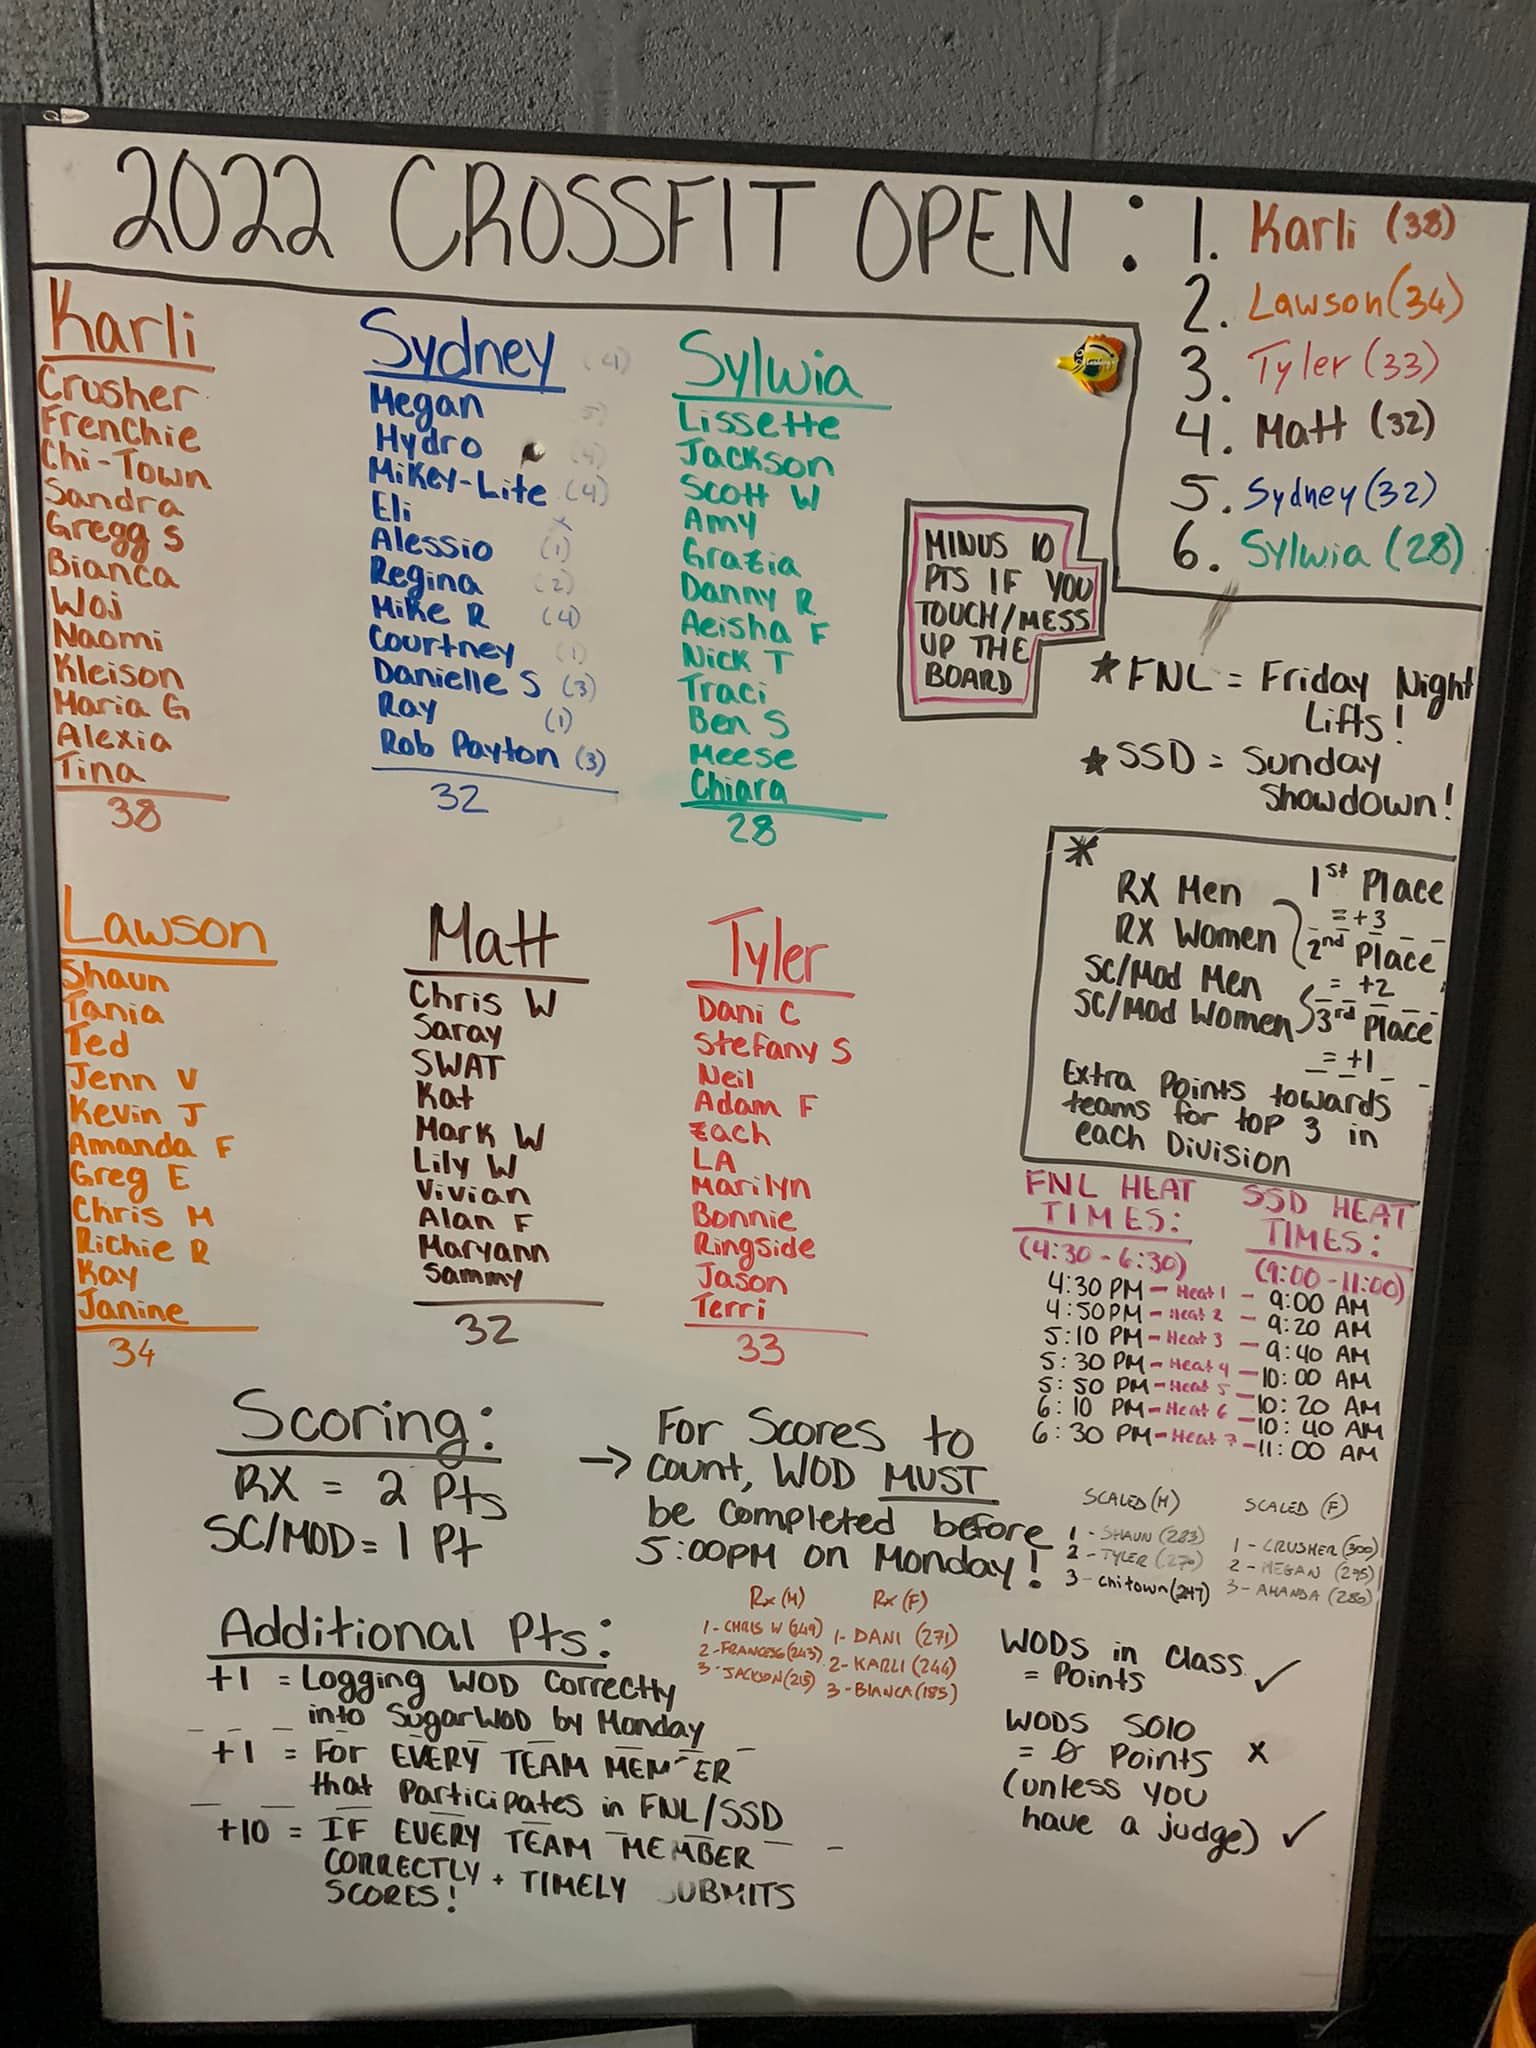 2022 CROSSFIT OPEN :
1. Karli (38)
2. Lawson (34)
3. Tyler (33)
4. Matt (32)
5. Sydney (32)
6. Sylwia (28)
Karli
Crusher
Frenchie
Chi-Town
Sandra
Gregg S
Bianca
Woj
Naomi
Kleison
Maria G
Alexia
Tina
38
Sydney (4)
Megan
Hydro
Mikey-Lite (4)
Eli
Alessio (1)
Regina (2)
Mike R (4)
Courtney (1)
Danielle S (3)
Ray (1)
Rob Payton (3)
32
Sylwia
Lissette
Jackson
Scott W
Amy
Grazia
Danny R
Aeisha F
Nick T
Traci
Ben S
Meese
Chiara
28
MINUS 10
PTS IF YOU
TOUCH/MESS
UP THE
BOARD
* FNL = Friday Night
Lifts!
* SSD = Sunday
Showdown!
Lawson
Shaun
Tania
Ted
Jenn V
Kevin J
Amanda F
Greg E
Chris M
Richie R
Kay
Janine
34
Matt
Chris W
Saray
SWAT
Kat
Mark W
Lily W
Vivian
Alan F
Maryann
Sammy
32
Tyler
Dani C
Stefany S
Neil
Adam F
Zach
LA
Marilyn
Bonnie
Ringside
Jason
Terri
33
*
RX Men
RX Women
SC/Mod Men
SC/Mod Women
1st Place
= +3
2nd Place
= +2
3rd Place
= +1
Extra Points towards
teams for top 3 in
each Division
FNL HEAT
TIMES:
(4:30 - 6:30)
SSD HEAT
TIMES:
(9:00 - 11:00)
4:30 PM - Heat 1 - 9:00 AM
4:50 PM - Heat 2 - 9:20 AM
5:10 PM - Heat 3 - 9:40 AM
5:30 PM - Heat 4 - 10:00 AM
5:50 PM - Heat 5 - 10:20 AM
6:10 PM - Heat 6 - 10:40 AM
6:30 PM - Heat 7 - 11:00 AM
Scoring:
RX = 2 Pts
SC/MOD = 1 Pt
→ For Scores to
count, WOD MUST
be completed before
5:00PM on Monday!
SCALED (M)
1 - SHAUN (283)
2 - TYLER (270)
3 - Chitown (247)
SCALED (F)
1 - CRUSHER (300)
2 - MEGAN (295)
3 - AMANDA (280)
Rx (M)
1 - CHRIS W (249)
2 - (243)
3 - JACKSON (215)
Rx (F)
1 - DANI (271)
2 - KARLI (244)
3 - BIANCA (185)
Additional Pts:
+1 = Logging WOD Correctly
into SugarWOD by Monday
+1 = For EVERY TEAM MEMBER
that Participates in FNL/SSD
+10 = IF EVERY TEAM MEMBER
CORRECTLY + TIMELY SUBMITS
SCORES!
WODS in Class
= Points ✓
WODS Solo
= 0 Points x
(unless you
have a judge) ✓